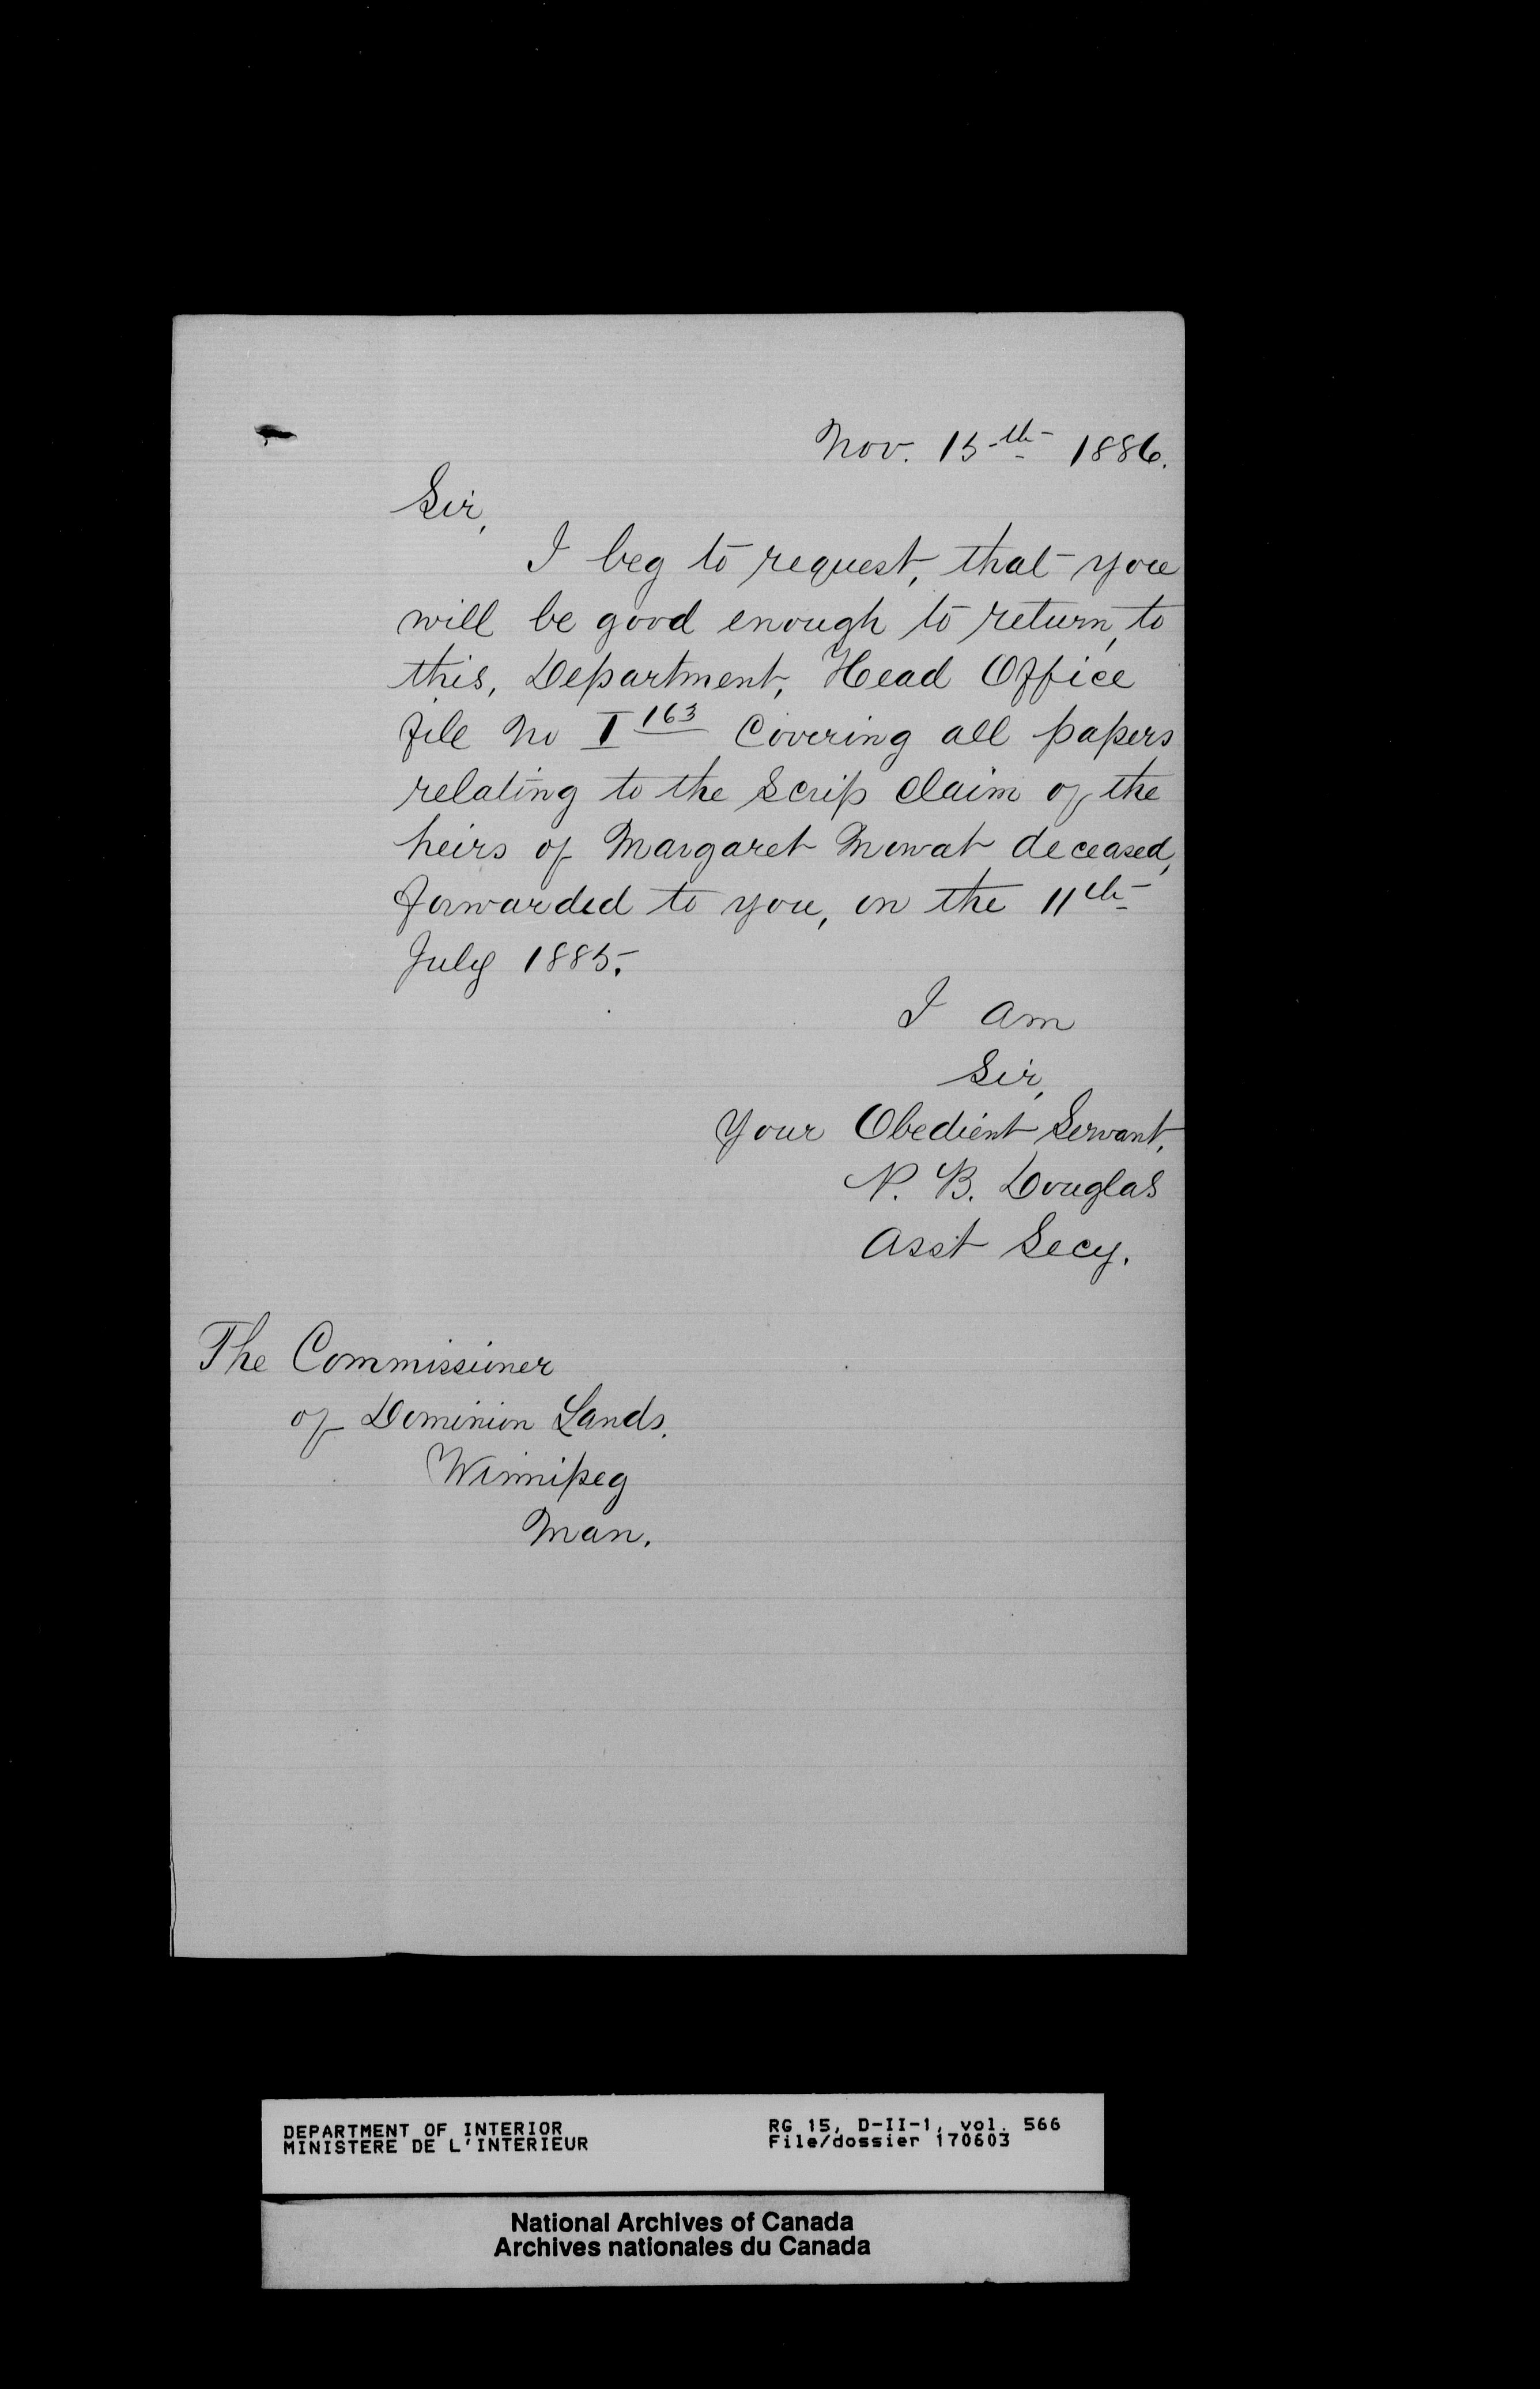 Nov. 15th 1886.
Sir,
I beg to request, that you
will be good enough to return, to
this, Department, Head Office
file No I 163 Covering all papers
relating to the Scrip Claim of the
heirs of Margaret Mowat deceased,
forwarded to you, on the 11th
July 1885.
I am
Sir,
Your Obedient Servant,
P. B. Douglas
Asst Secy.
The Commissioner
of Dominion Lands.
Winnipeg
Man.
DEPARTMENT OF INTERIOR
MINISTERE DE L'INTERIEUR
RG 15, D-II-1, vol. 566
File/dossier 170603
National Archives of Canada
Archives nationales du Canada